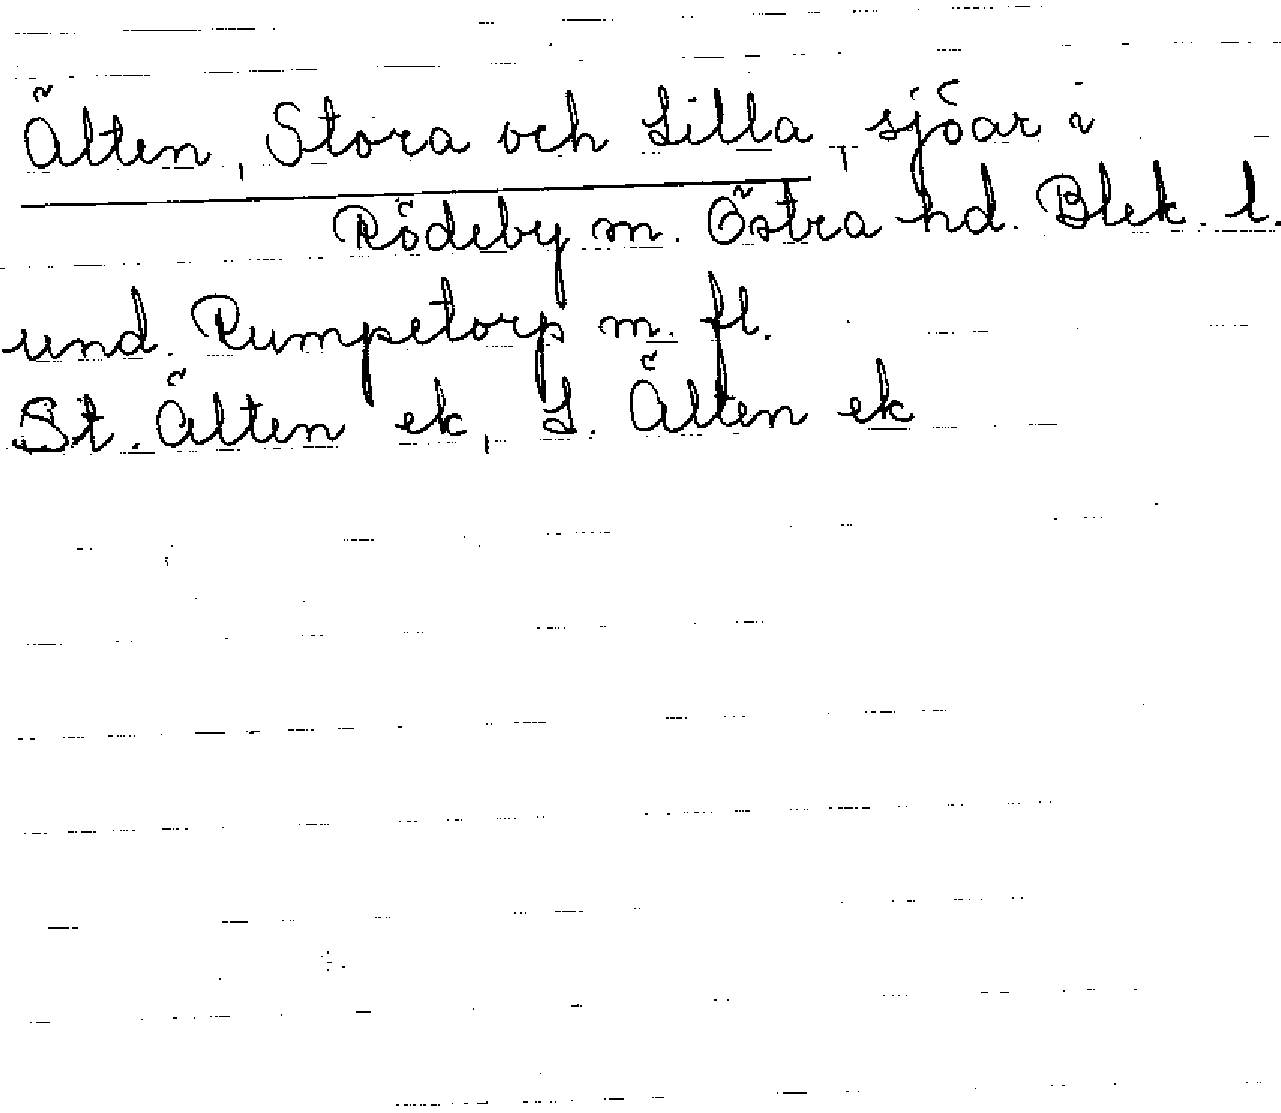 Älten, Stora och Lilla, sjöar i
Rödeby sn. Östra hd. Blek. l.
und. Rumpetorp m. fl.
St. Älten ek, L. Älten ek